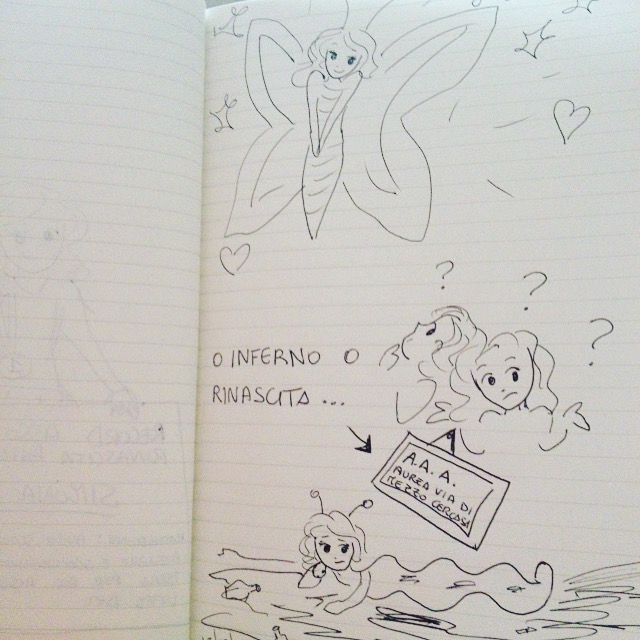 ?
?
?
O INFERNO O
RINASCITA ...
A.A.A.
AUREA VIA DI
MEZZO CERCASI